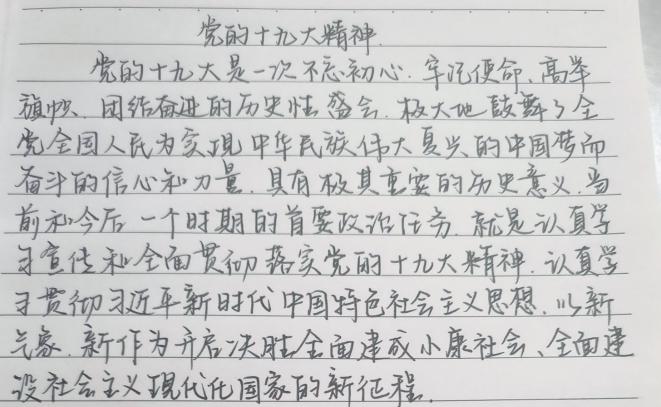 党的十九大精神.
党的十九大是一次不忘初心.牢记使命、高举
旗帜、团结奋进的历史性盛会.极大地鼓舞了全
党全国人民为实现中华民族伟大复兴的中国梦而
奋斗的信心和力量.具有极其重要的历史意义.当
前和今后一个时期的首要政治任务.就是认真学
习宣传和全面贯彻落实党的十九大精神.认真学
习贯彻习近平新时代中国特色社会主义思想.以新
气象.新作为开启决胜全面建成小康社会、全面建
设社会主义现代化国家的新征程.